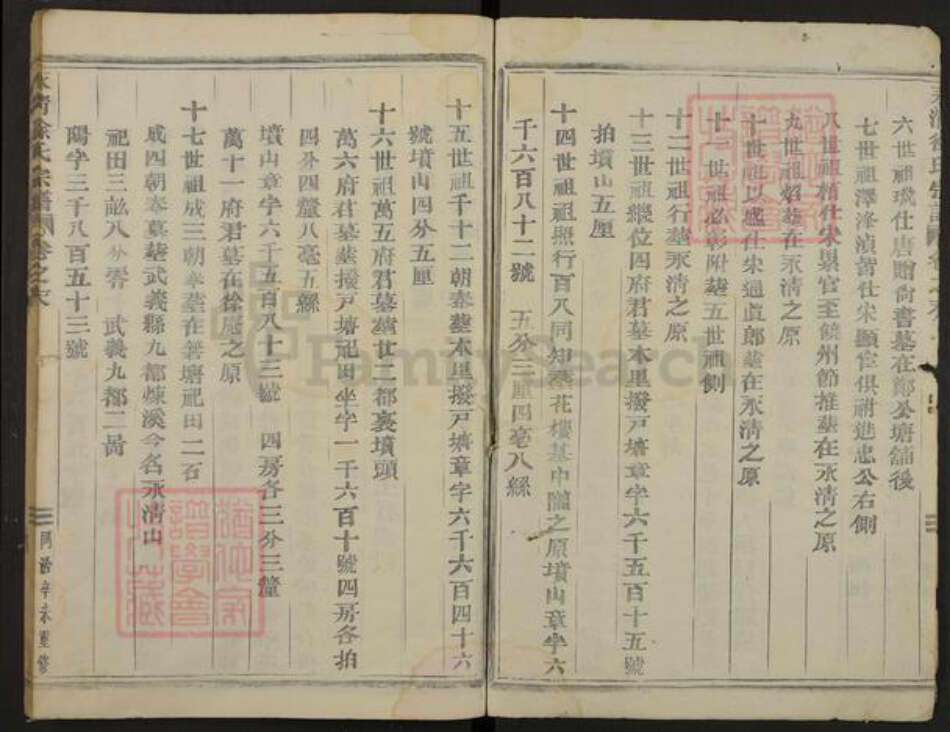 六世祖珹仕唐贈尚書墓在鄭公塘舖後
七世祖澤洚湞皆仕宋顯官俱祔進忠公右側
八世祖栢仕宋累官至饒州節推塟在永清之原
九世祖炤塟在永清之原
十世祖以盛仕宋通直郎塟在永清之原
十一世祖必彰附塟五世祖側
十二世祖行塟永清之原
十三世祖縱位四府君墓本里撥戸塘章字六千五百十五號
拍墳山五厘
十四世祖照行百八同知塟花樓基中隴之原墳山章字六
千六百八十二號 五分二厘四毫八絲
十五世祖千十二朝奉塟本里撥戸塘章字六千六百四十六
號墳山四分五厘
十六世祖萬五府君墓塟廿三都裏墳頭
萬六府君墓塟撥戸塘祀田坐字一千六百十號四房各拍
四分四釐八毫五絲
墳山章字六千五百八十三號 四房各三分三釐
萬十一府君墓在徐庭之原
十七世祖成三朝奉塟在箬塘祀田二石
成四朝奉墓塟武義縣九都煉溪今名永清山
祀田三畝八分零 武義九都二啚
陽字三千八百五十三號
永清徐氏宗譜 卷之末
同治辛未重修
FamilySearch